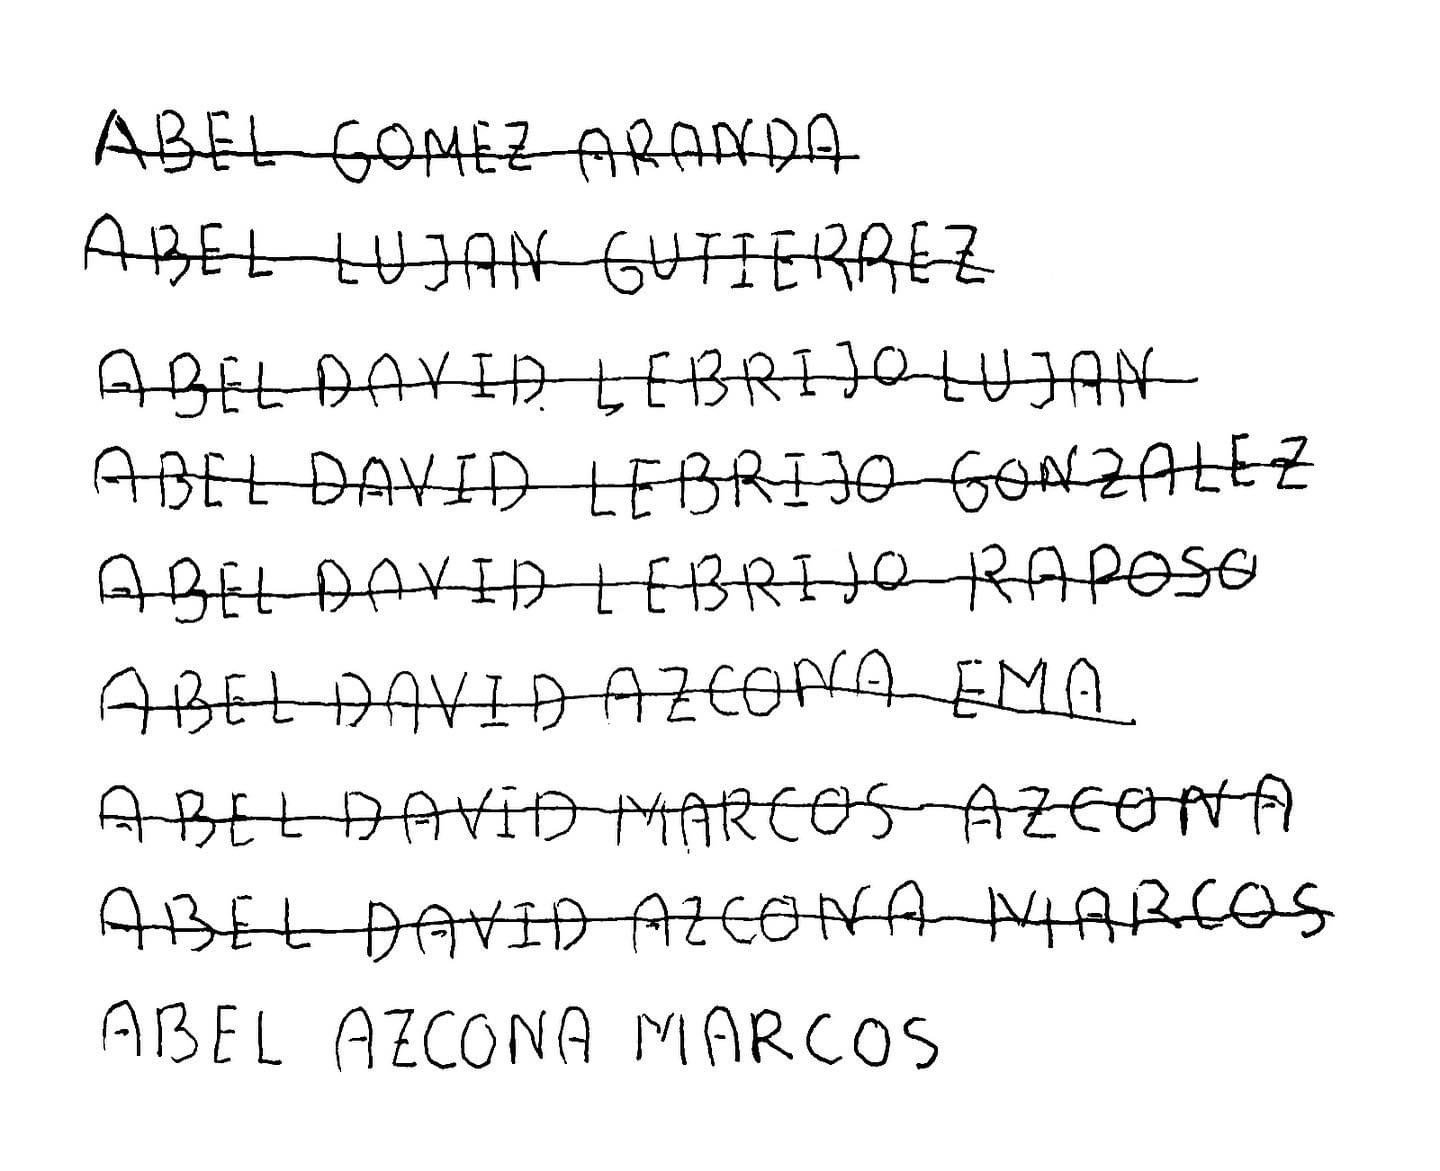 ABEL GOMEZ ARANDA
ABEL LUJAN GUTIERREZ
ABEL DAVID LEBRIJO LUJAN
ABEL DAVID LEBRIJO GONZALEZ
ABEL DAVID LEBRIJO RAPOSO
ABEL DAVID AZCONA EMA
ABEL DAVID MARCOS AZCONA
ABEL DAVID AZCONA MARCOS
ABEL AZCONA MARCOS